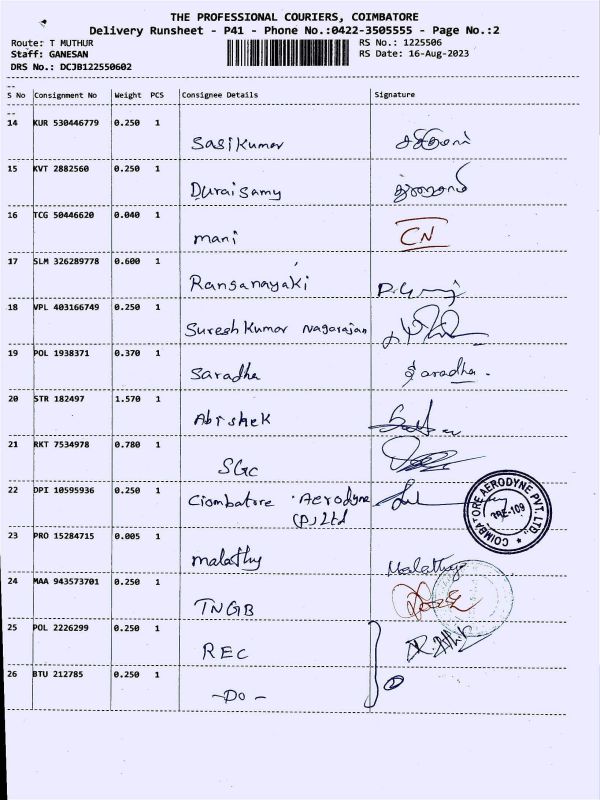 THE PROFESSIONAL COURIERS, COIMBATORE
Delivery Runsheet - P41 - Phone No.:0422-3505555 - Page No.:2
Route: T MUTHUR RS No.: 1225506
Staff: GANESAN RS Date: 16-Aug-2023
DRS No.: DCJB122550602
S No Consignment No Weight PCS Consignee Details Signature
14 KUR 530446779 0.250 1
Sasikumar
15 KVT 2882560 0.250 1
Duraisamy
16 TCG 50446620 0.040 1
mani CN
17 SLM 326289778 0.600 1
Ranganayaki
18 VPL 403166749 0.250 1
Suresh Kumar Nagarajan
19 POL 1938371 0.370 1
Saradha Saradha.
20 STR 182497 1.570 1
Abishek
21 RKT 7534978 0.780 1
SGC
22 DPI 10595936 0.250 1
Ciombatore Aerodyne
(P) Ltd
COIMBATORE AERODYNE PVT. LTD.,
TRE-109
23 PRO 15284715 0.005 1
malathy Malathy
24 MAA 943573701 0.250 1
TNGB
25 POL 2226299 0.250 1
REC
26 BTU 212785 0.250 1
-Do-